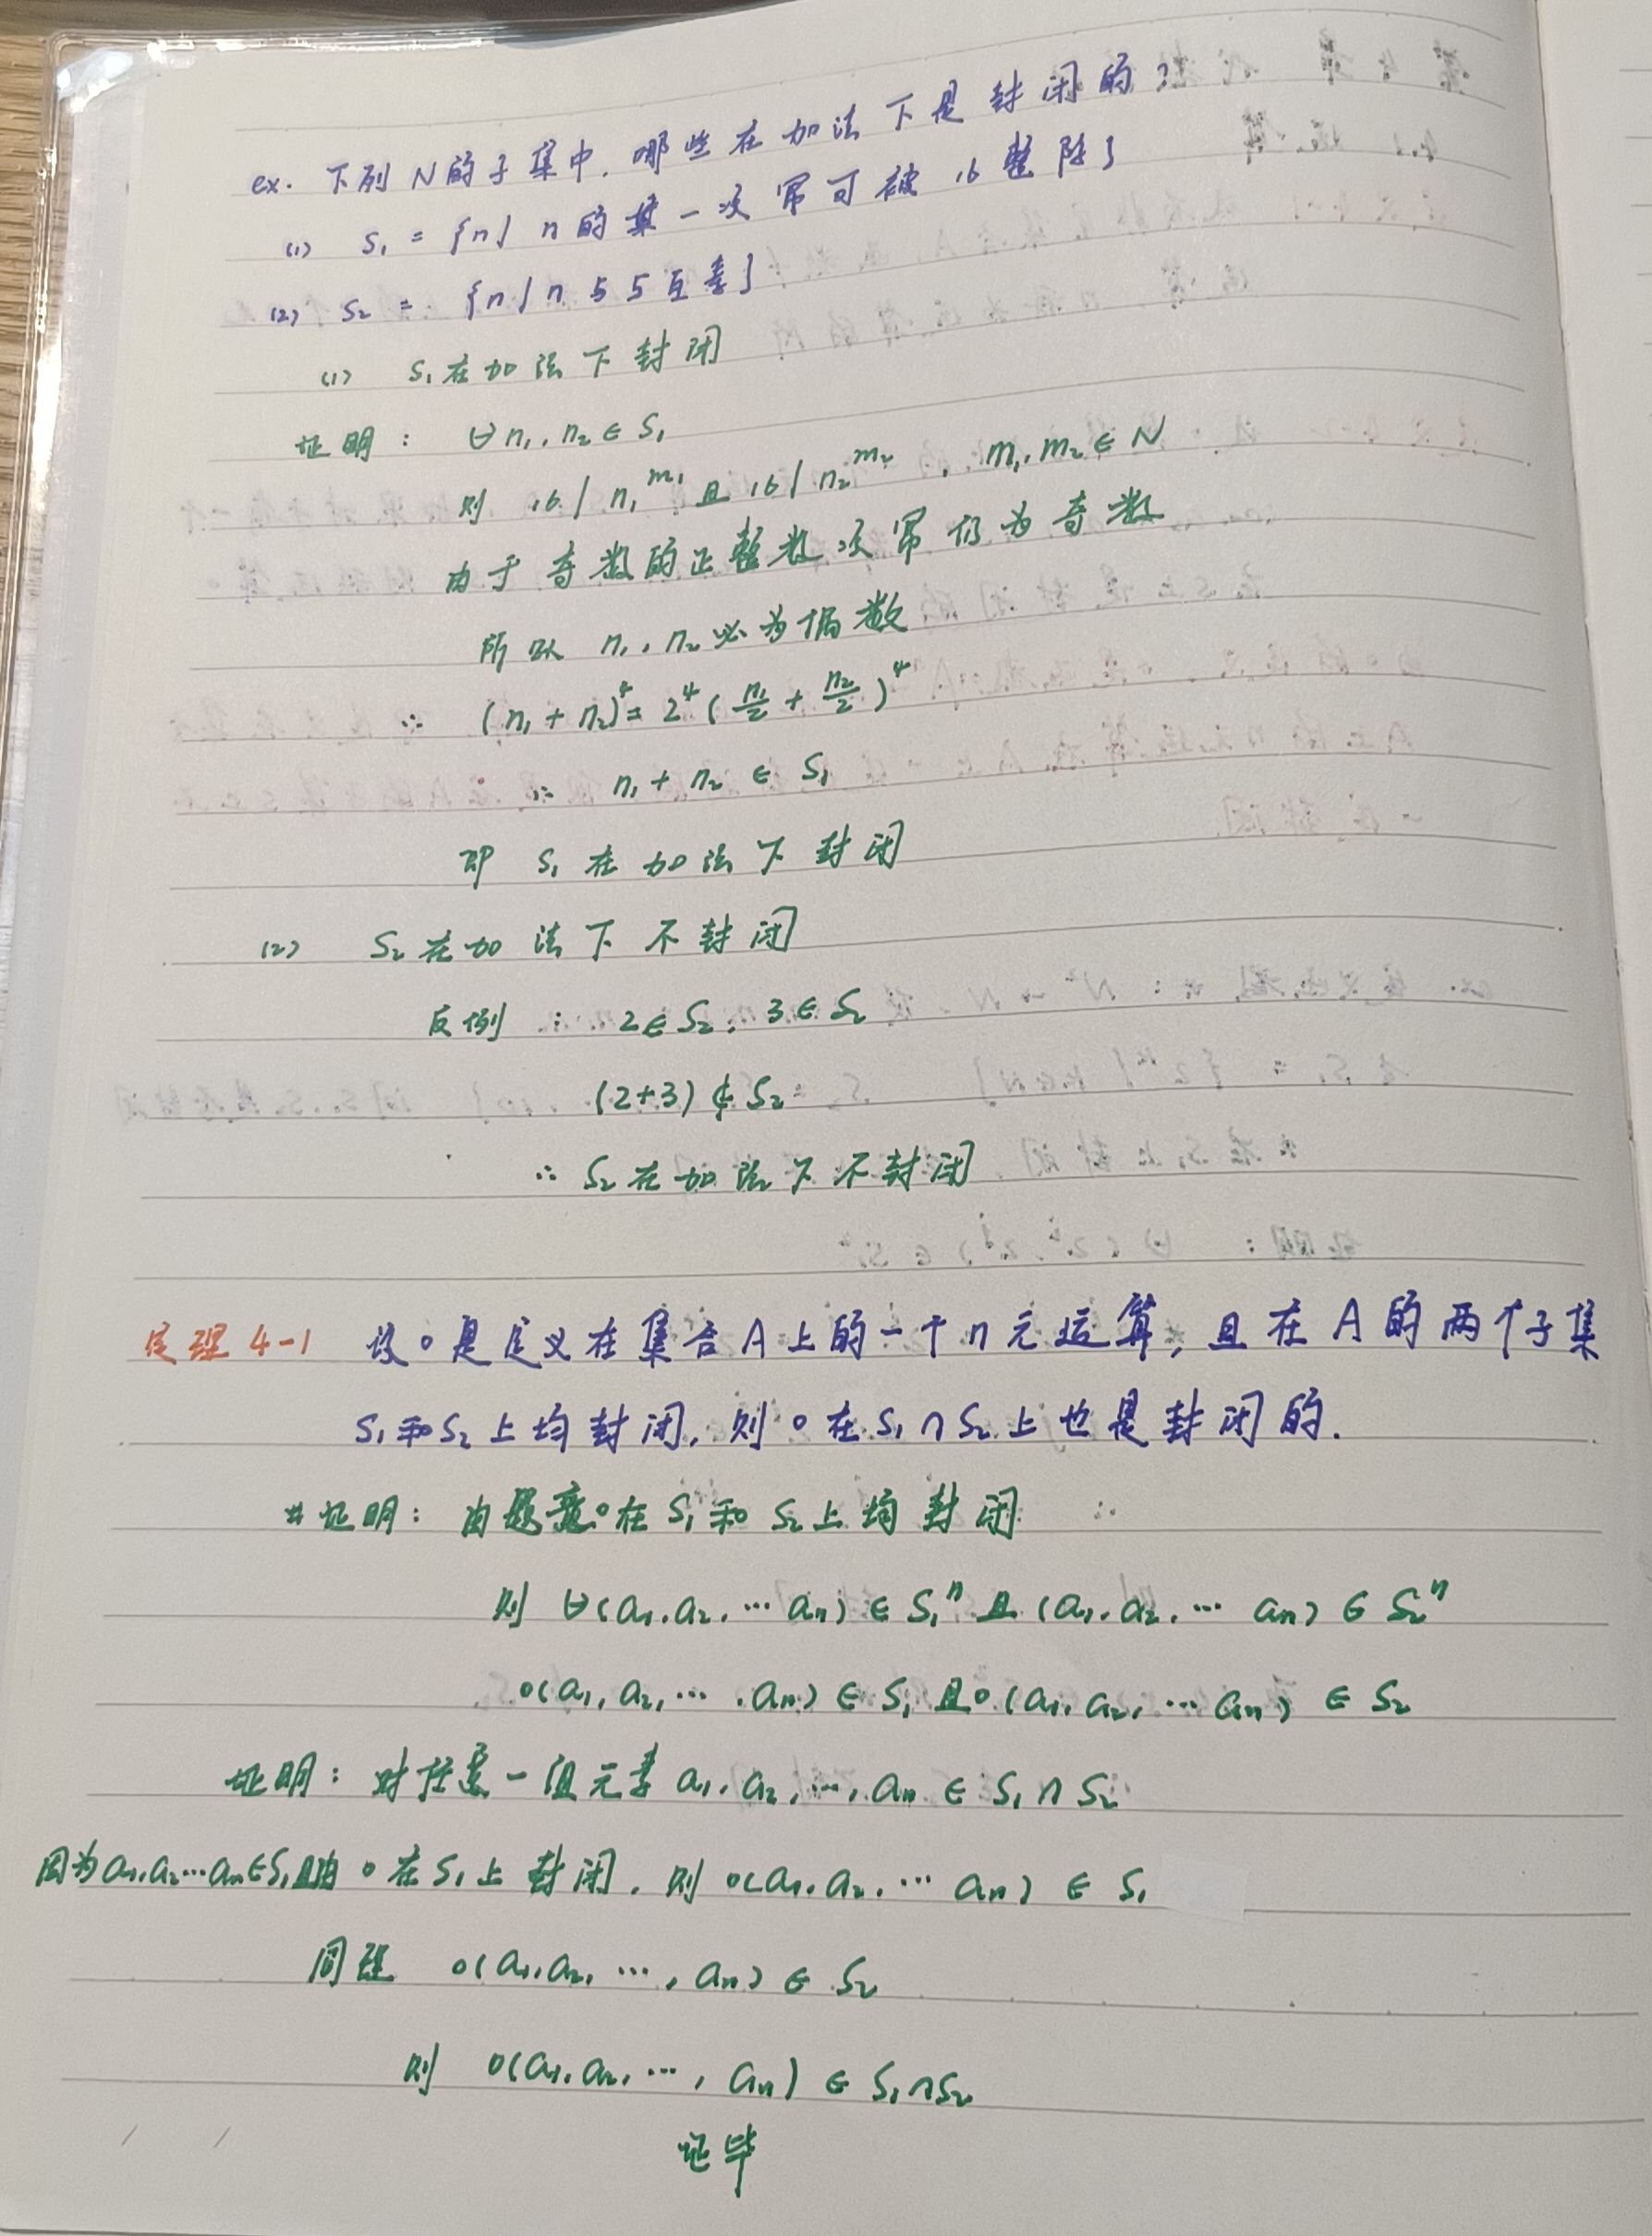 ex. 下列 N 的子集中, 哪些在加法下是封闭的?
(1) S₁ = {n| n的某一次幂可被16整除}
(2) S₂ = {n|n与5互素}
(1) S₁在加法下封闭
证明: ∀n₁,n₂∈S₁
则 16|n₁^m₁ 且 16|n₂^m₂, m₁,m₂∈N
由于奇数的正整数次幂仍为奇数
所以 n₁,n₂必为偶数
∴ (n₁+n₂)⁴=2⁴(n₁/2+n₂/2)⁴
∴ n₁+n₂∈S₁
即 S₁在加法下封闭
(2) S₂在加法下不封闭
反例: 2∈S₂, 3∈S₂
(2+3)∉S₂
∴ S₂在加法下不封闭
定理4-1 设∘是定义在集合A上的一个n元运算, 且在A的两个子集
S₁和S₂上均封闭, 则∘在S₁∩S₂上也是封闭的.
#证明: 由题意∘在S₁和S₂上均封闭
则 ∀(a₁,a₂,…aₙ)∈S₁ⁿ且(a₁,a₂,…aₙ)∈S₂ⁿ
∘(a₁,a₂,…,aₙ)∈S₁且∘(a₁,a₂,…aₙ)∈S₂
证明: 对任意一组元素a₁,a₂,…,aₙ∈S₁∩S₂
因为a₁,a₂…aₙ∈S₁且由∘在S₁上封闭, 则∘(a₁,a₂,…aₙ)∈S₁
同理 ∘(a₁,a₂,…,aₙ)∈S₂
则 ∘(a₁,a₂,…,aₙ)∈S₁∩S₂
证毕